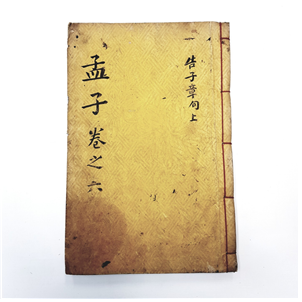 告子章句上
孟子卷之六